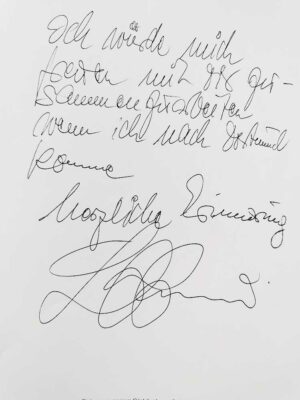 Ich würde mich
freuen mit Dir zu-
sammenzuarbeiten
wenn ich nach Dortmund
komme
herzliche Erinnerung